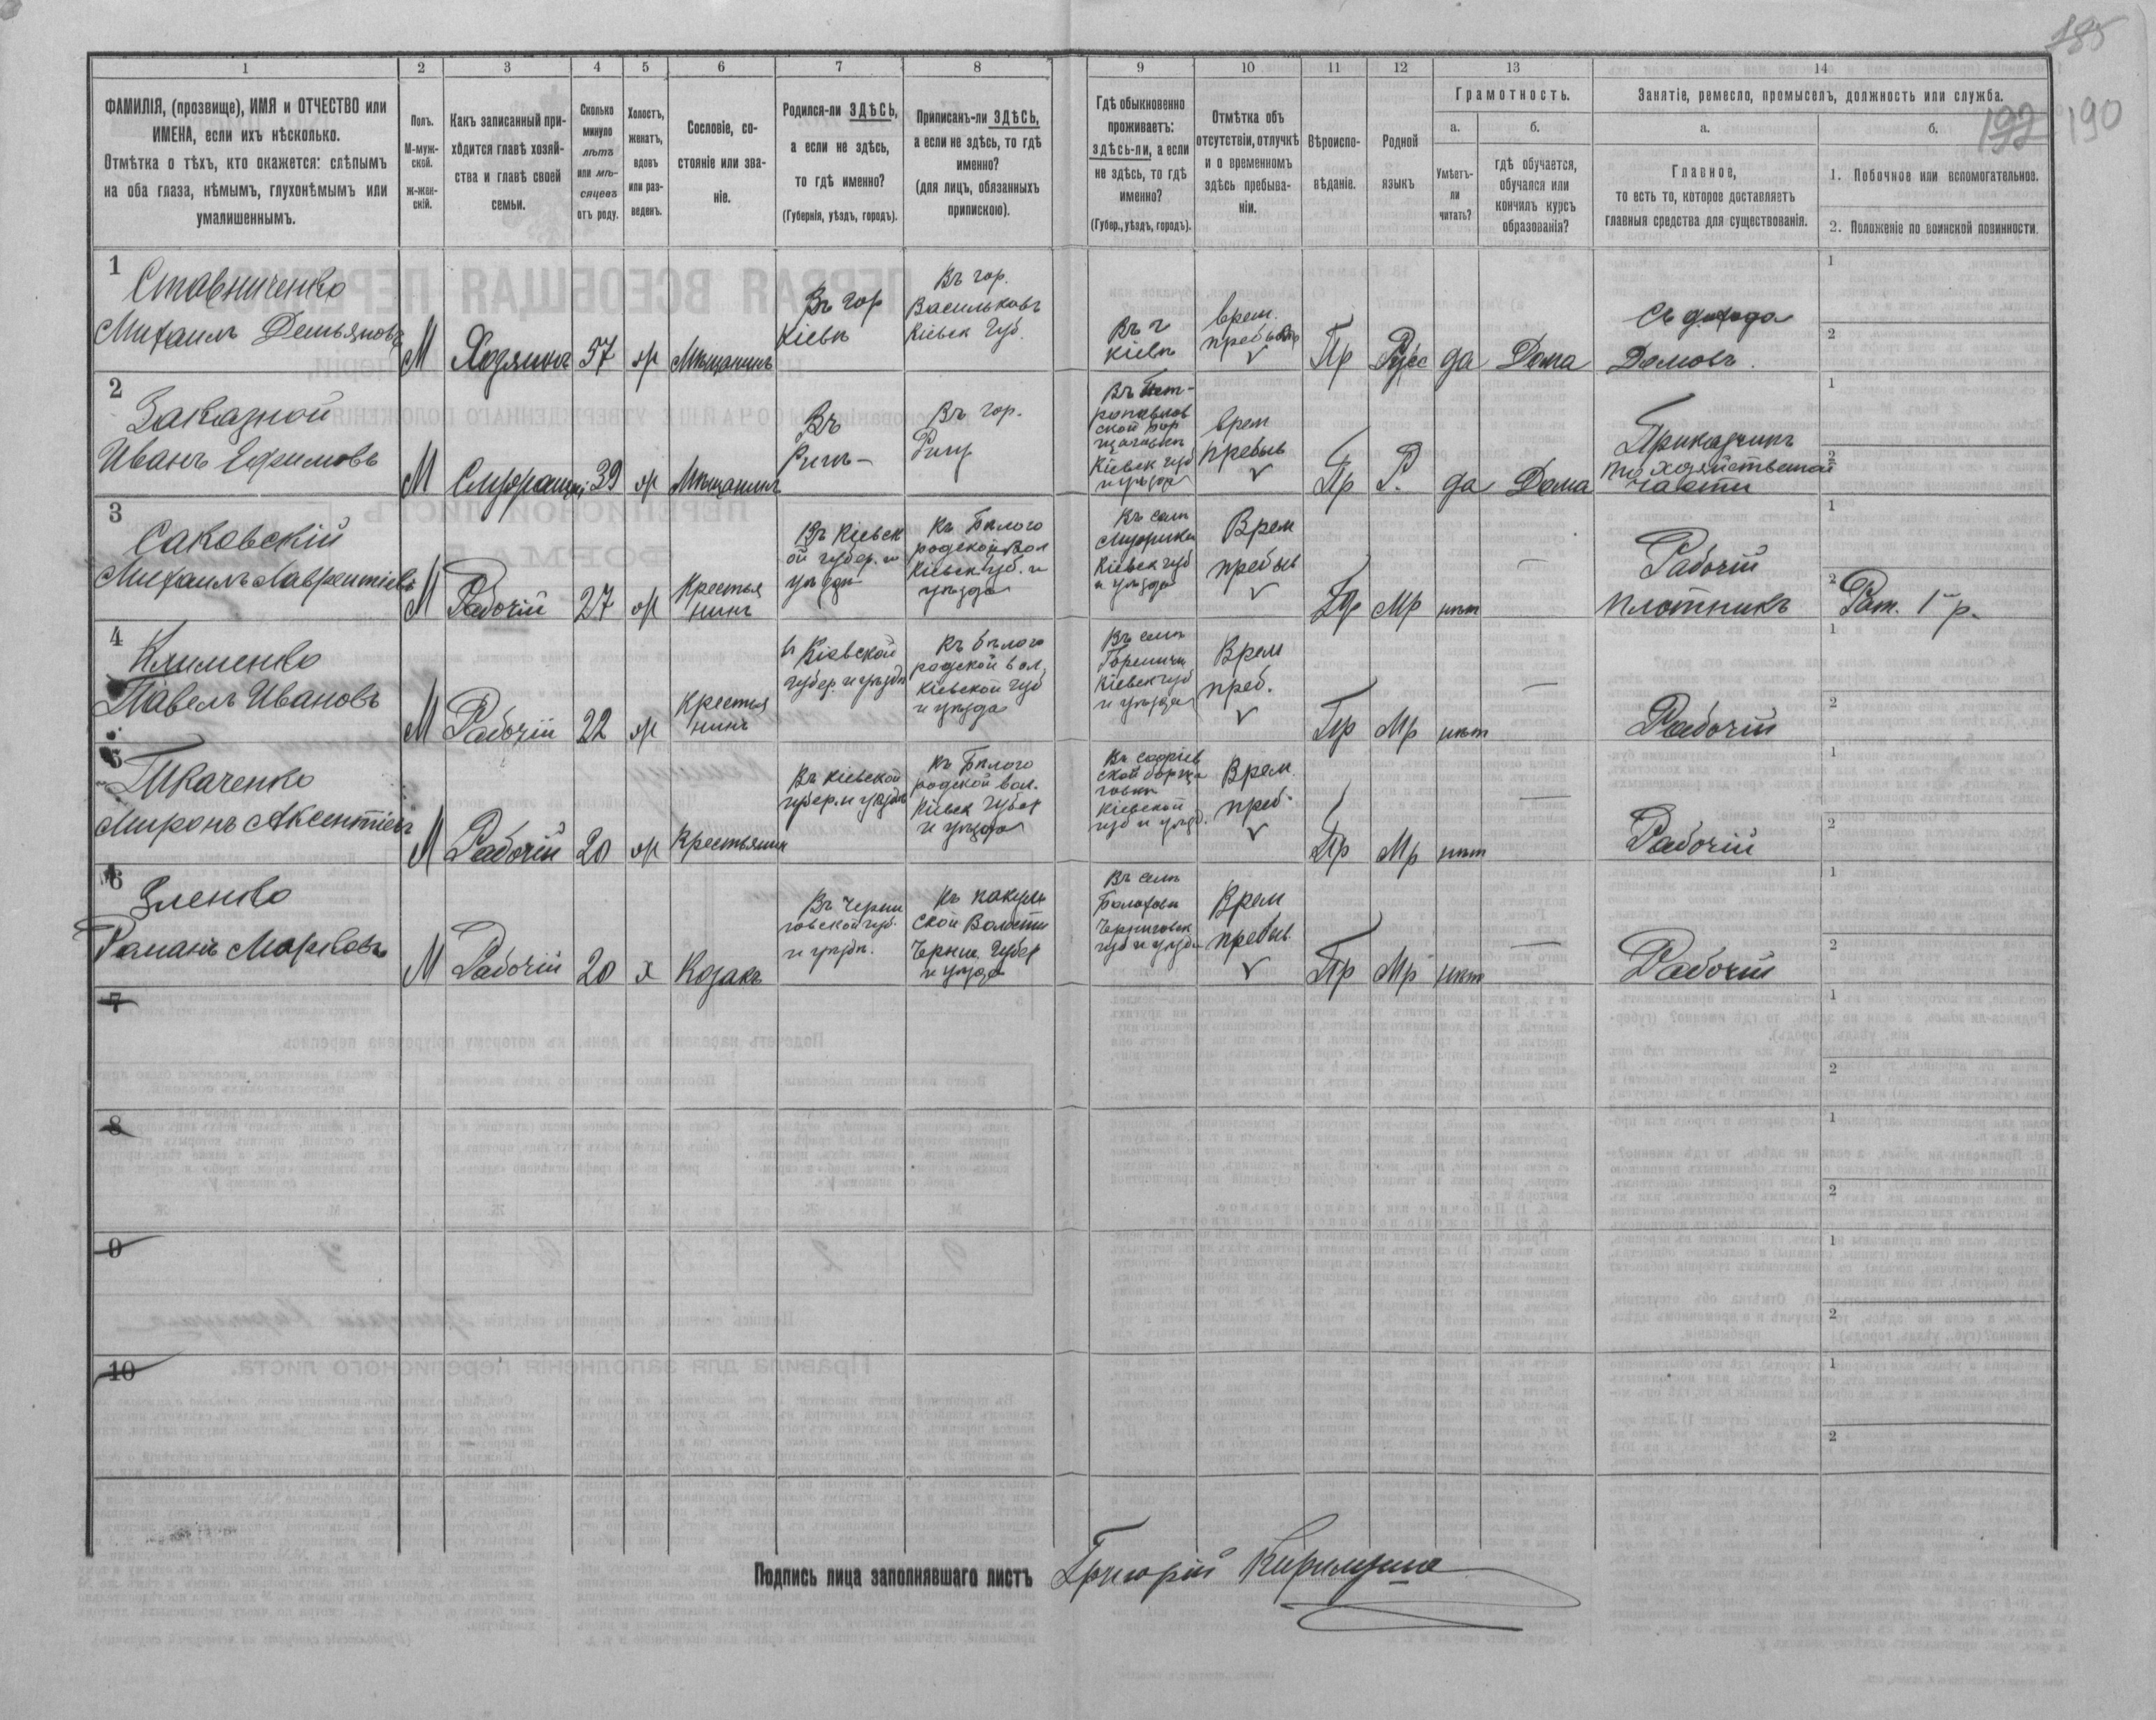 185
192 190
1 2 3 4 5 6 7 8 9 10 11 12 13 14
ФАМИЛІЯ, (прозвище), ИМЯ и ОТЧЕСТВО или
ИМЕНА, если ихъ нѣсколько.
Отмѣтка о тѣхъ, кто окажется: слѣпымъ
на оба глаза, нѣмымъ, глухонѣмымъ или
умалишеннымъ.
Полъ.
М-муж-
ской.
ж-жен-
скій.
Какъ записанный при-
ходится главѣ хозяй-
ства и главѣ своей
семьи.
Сколько
минуло
лѣтъ
или мѣ-
сяцевъ
отъ роду.
Холостъ,
женатъ,
вдовъ
или раз-
веденъ.
Сословіе, со-
стояніе или зва-
ніе.
Родился-ли ЗДѢСЬ,
а если не здѣсь,
то гдѣ именно?
(Губернія, уѣздъ, городъ).
Приписанъ-ли ЗДѢСЬ,
а если не здѣсь, то гдѣ
именно?
(для лицъ, обязанныхъ
припискою).
Гдѣ обыкновенно
проживаетъ:
здѣсь-ли, а если
не здѣсь, то гдѣ
именно?
(Губер., уѣздъ, городъ).
Отмѣтка объ
отсутствіи, отлучкѣ
и о временномъ
здѣсь пребыва-
ніи.
Вѣроиспо-
вѣданіе.
Родной
языкъ
Грамотность.
а.
Умѣетъ-
ли
читать?
б.
гдѣ обучается,
обучался или
кончилъ курсъ
образованія?
Занятіе, ремесло, промыселъ, должность или служба.
а.
Главное,
то есть то, которое доставляетъ
главныя средства для существованія.
б.
1. Побочное или вспомогательное.
2. Положеніе по воинской повинности.
1
Ставниченко
Михаилъ Демьяновъ
М
Хозяинъ
57
Мѣщанинъ
Въ гор
Кіевѣ
Въ гор.
Васильковъ
Кіевск Губ.
Въ г
Кіевѣ
врем.
Пр
Русс
да
Дома
Съ дохода
Домовъ.
1
2
2
Заказной
Иванъ Ефимовъ
М
39
Мѣщанинъ
Въ
Ригѣ
Въ гор.
Ригу
Кіевск губ
и уѣзда
врем
пребыв
Пр
Р.
да
Дома
Приказчикъ
по хозяйственной
части
1
2
3
Саковскій
Михаилъ Лаврентіевъ
М
Рабочій
27
Крестья
нинъ
Въ Кіевск
ой губер. и
уѣздѣ
Къ Бѣлого
родской вол
Кіевск. губ. и
уѣзда
Въ селѣ
Кіевск губ
и уѣзда
Врем
пребыв
Пр
Мр
нѣт
—
Рабочій
плотникъ
1
2
Рат. 1 р.
4
Клименко
Павелъ Ивановъ
М
Рабочій
22
Крестья
нинъ
Кіевской
губер. и уѣздѣ
Къ Бѣлого
родской вол,
Кіевской губ
и уѣзда
Въ селѣ
Гореничи
Кіевск губ
и уѣзда
Врем
преб.
Пр
Мр
нѣт
—
Рабочій
1
2
5
Ткаченко
Миронъ Аксентіевъ
М
Рабочій
20
Крестьянин
Въ Кіевской
губер. и уѣздѣ
Къ Бѣлого
родской вол.
Кіевск Губер
и уѣзда
Въ Софіев
ской Борща
говкѣ
Кіевской
губ и уѣзд.
Врем.
преб.
Пр
Мр
нѣт
—
Рабочій
1
2
6
Зленко
Романъ Марковъ
М
Рабочій
20
х
Козакъ
Въ Черни
говской губ.
и уѣздѣ.
Къ пакуль
ской Волости
Черниг. Губер
и уѣзда
Въ селѣ
Черниговск
губ и уѣзда
Врем
пребыв.
Пр
Мр
нѣт
—
Рабочій
1
2
7
1
2
8
1
2
9
1
2
10
1
2
Подпись лица заполнявшаго листъ Григорій